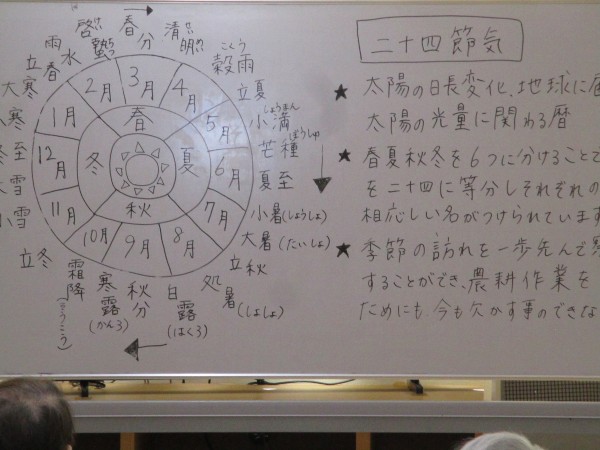 二十四節気
★ 太陽の日長変化、地球に届
太陽の光量に関わる暦
★ 春夏秋冬を6つに分けることで
を二十四に等分しそれぞれの
相応しい名がつけられています
★ 季節の訪れを一歩先んで察
することができ、農耕作業を
ためにも、今も欠かす事のできな
春分
清明
穀雨
こくう
立夏
小満
しょうまん
芒種
ぼうしゅ
夏至
小暑(しょうしょ)
大暑(たいしょ)
立秋
処暑(しょしょ)
白露(はくろ)
秋分
寒露(かんろ)
霜降(そうこう)
立冬
小雪
大雪
冬至
小寒
大寒
立春
雨水
啓蟄
1月
2月
3月
4月
5月
6月
7月
8月
9月
10月
11月
12月
春
夏
秋
冬